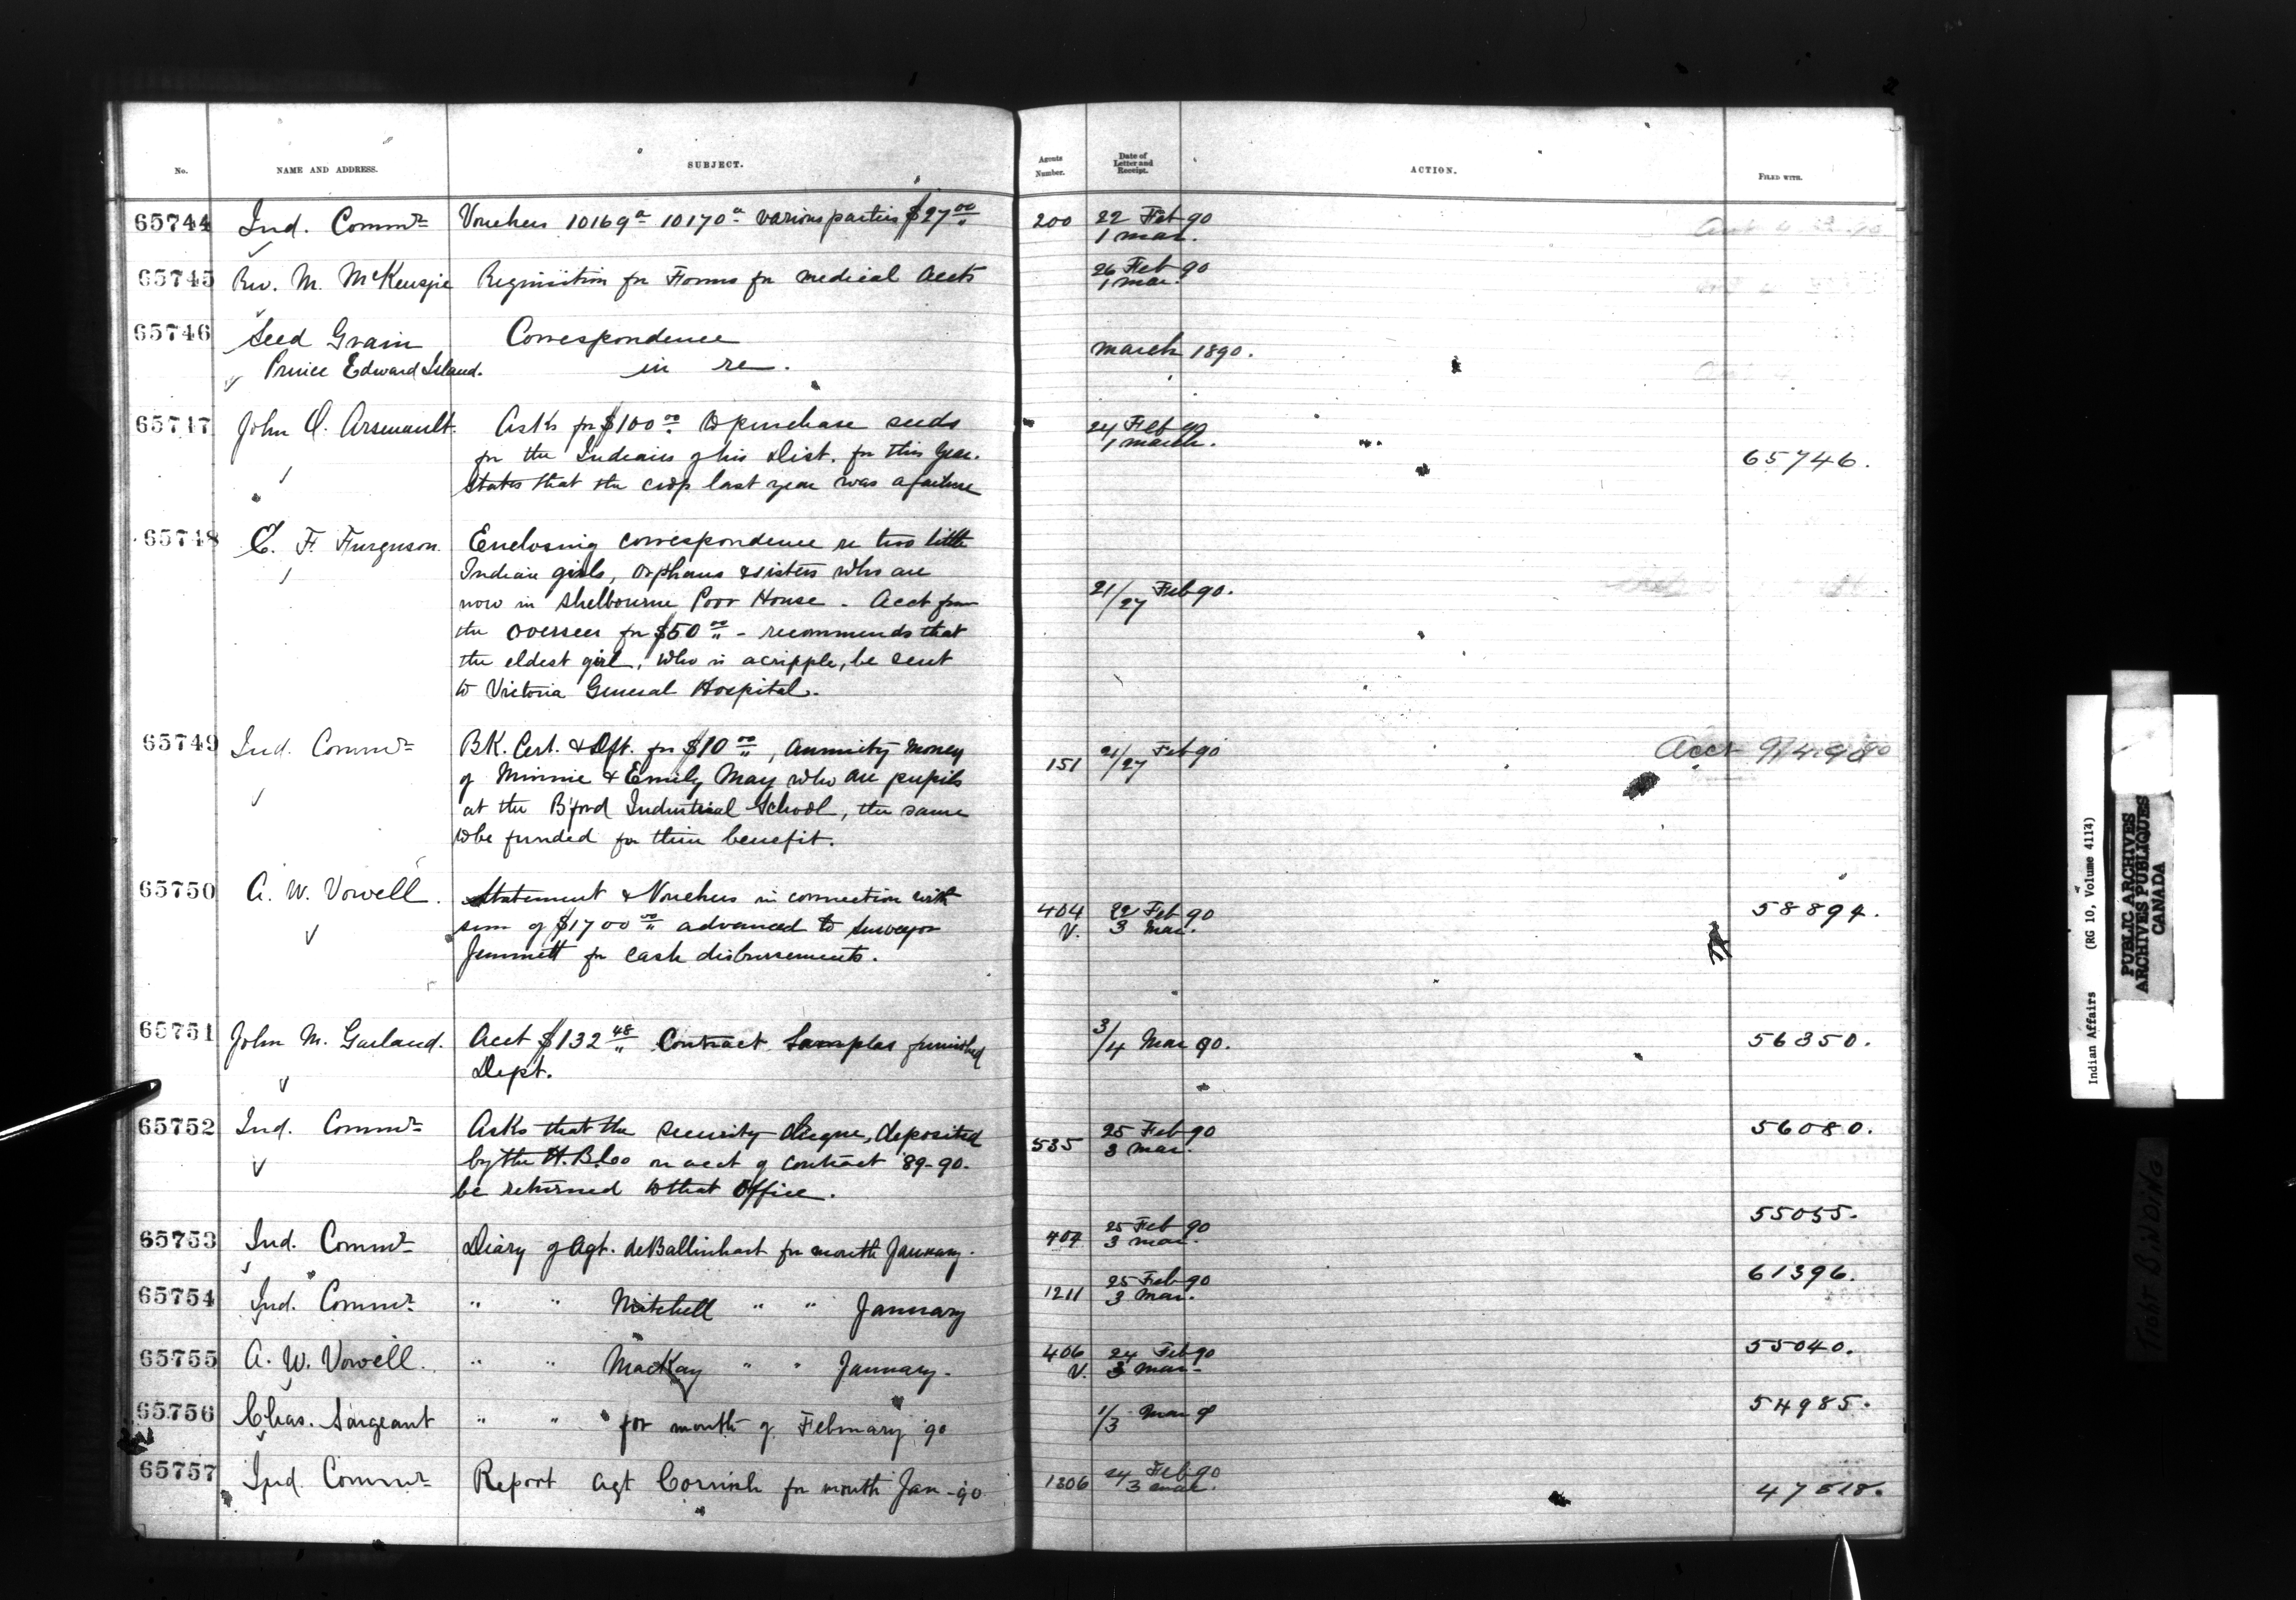 No. NAME AND ADDRESS. SUBJECT. Agents Number. Date of Letter and Receipt. ACTION. FILED WITH.
65744 Ind. Commr Vouchers 10169a 10170a various parties $27.00 200 22 Feb 90
1 Mar.
65745 Rev. M. McKenzie Requisition for Forms for medical accts 26 Feb 90
1 Mar.
65746 Seed Grain Correspondence
Prince Edward Island. in re. March 1890.
65747 John O. Arsenault. Asks for $100.00 to purchase seeds 24 Feb 90
1 March.
for the Indians of his Dist. for this year. 65746.
States that the crop last year was a failure
65748 C. F. Furguson. Enclosing correspondence re two little
Indian girls, orphans & sisters who are
now in Shelbourne Poor House - Acct from 21/27 Feb 90.
the overseer for $50.00 - recommends that
the eldest girl, who is a cripple, be sent
to Victoria General Hospital.
65749 Ind. Commr BK. Cert. & Dft. for $10.00, annuity money 151 21/27 Feb 90 Acct
of Minnie & Emily May who are pupils
at the B'ford Industrial School, the same
to be funded for their benefit.
65750 A. W. Vowell. Statement & Vouchers in connection with 404 V. 22 Feb 90 58894.
sum of $1700.00 advanced to Surveyor 3 Mar.
Jemmett for cash disbursements.
65751 John M. Garland. Acct $132.48 Contract Samples furnished 3/4 Mar 90. 56350.
Dept.
65752 Ind. Commr Asks that the security cheque, deposited 535 25 Feb 90 56080.
by the H.B.Co on acct of contract '89-90. 3 Mar.
be returned to that office.
65753 Ind. Commr Diary of Agt. deBallinhart for month January. 404 25 Feb 90 55055.
3 Mar.
65754 Ind. Commr " " Mitchell " " January 1211 25 Feb 90 61396.
3 Mar.
65755 A. W. Vowell. " " MacKay " " January. 406 V. 24 Feb 90 55040.
3 Mar.
65756 Chas. Sargeant " " for month of February 90 1/3 Mar 54985.
65757 Ind. Commr Report Agt Cornish for month Jan - 90 1306 24 Feb 90 47518.
3 Mar.
Indian Affairs (RG 10, Volume 4114)
PUBLIC ARCHIVES
ARCHIVES PUBLIQUES
CANADA
TIGHT BINDING